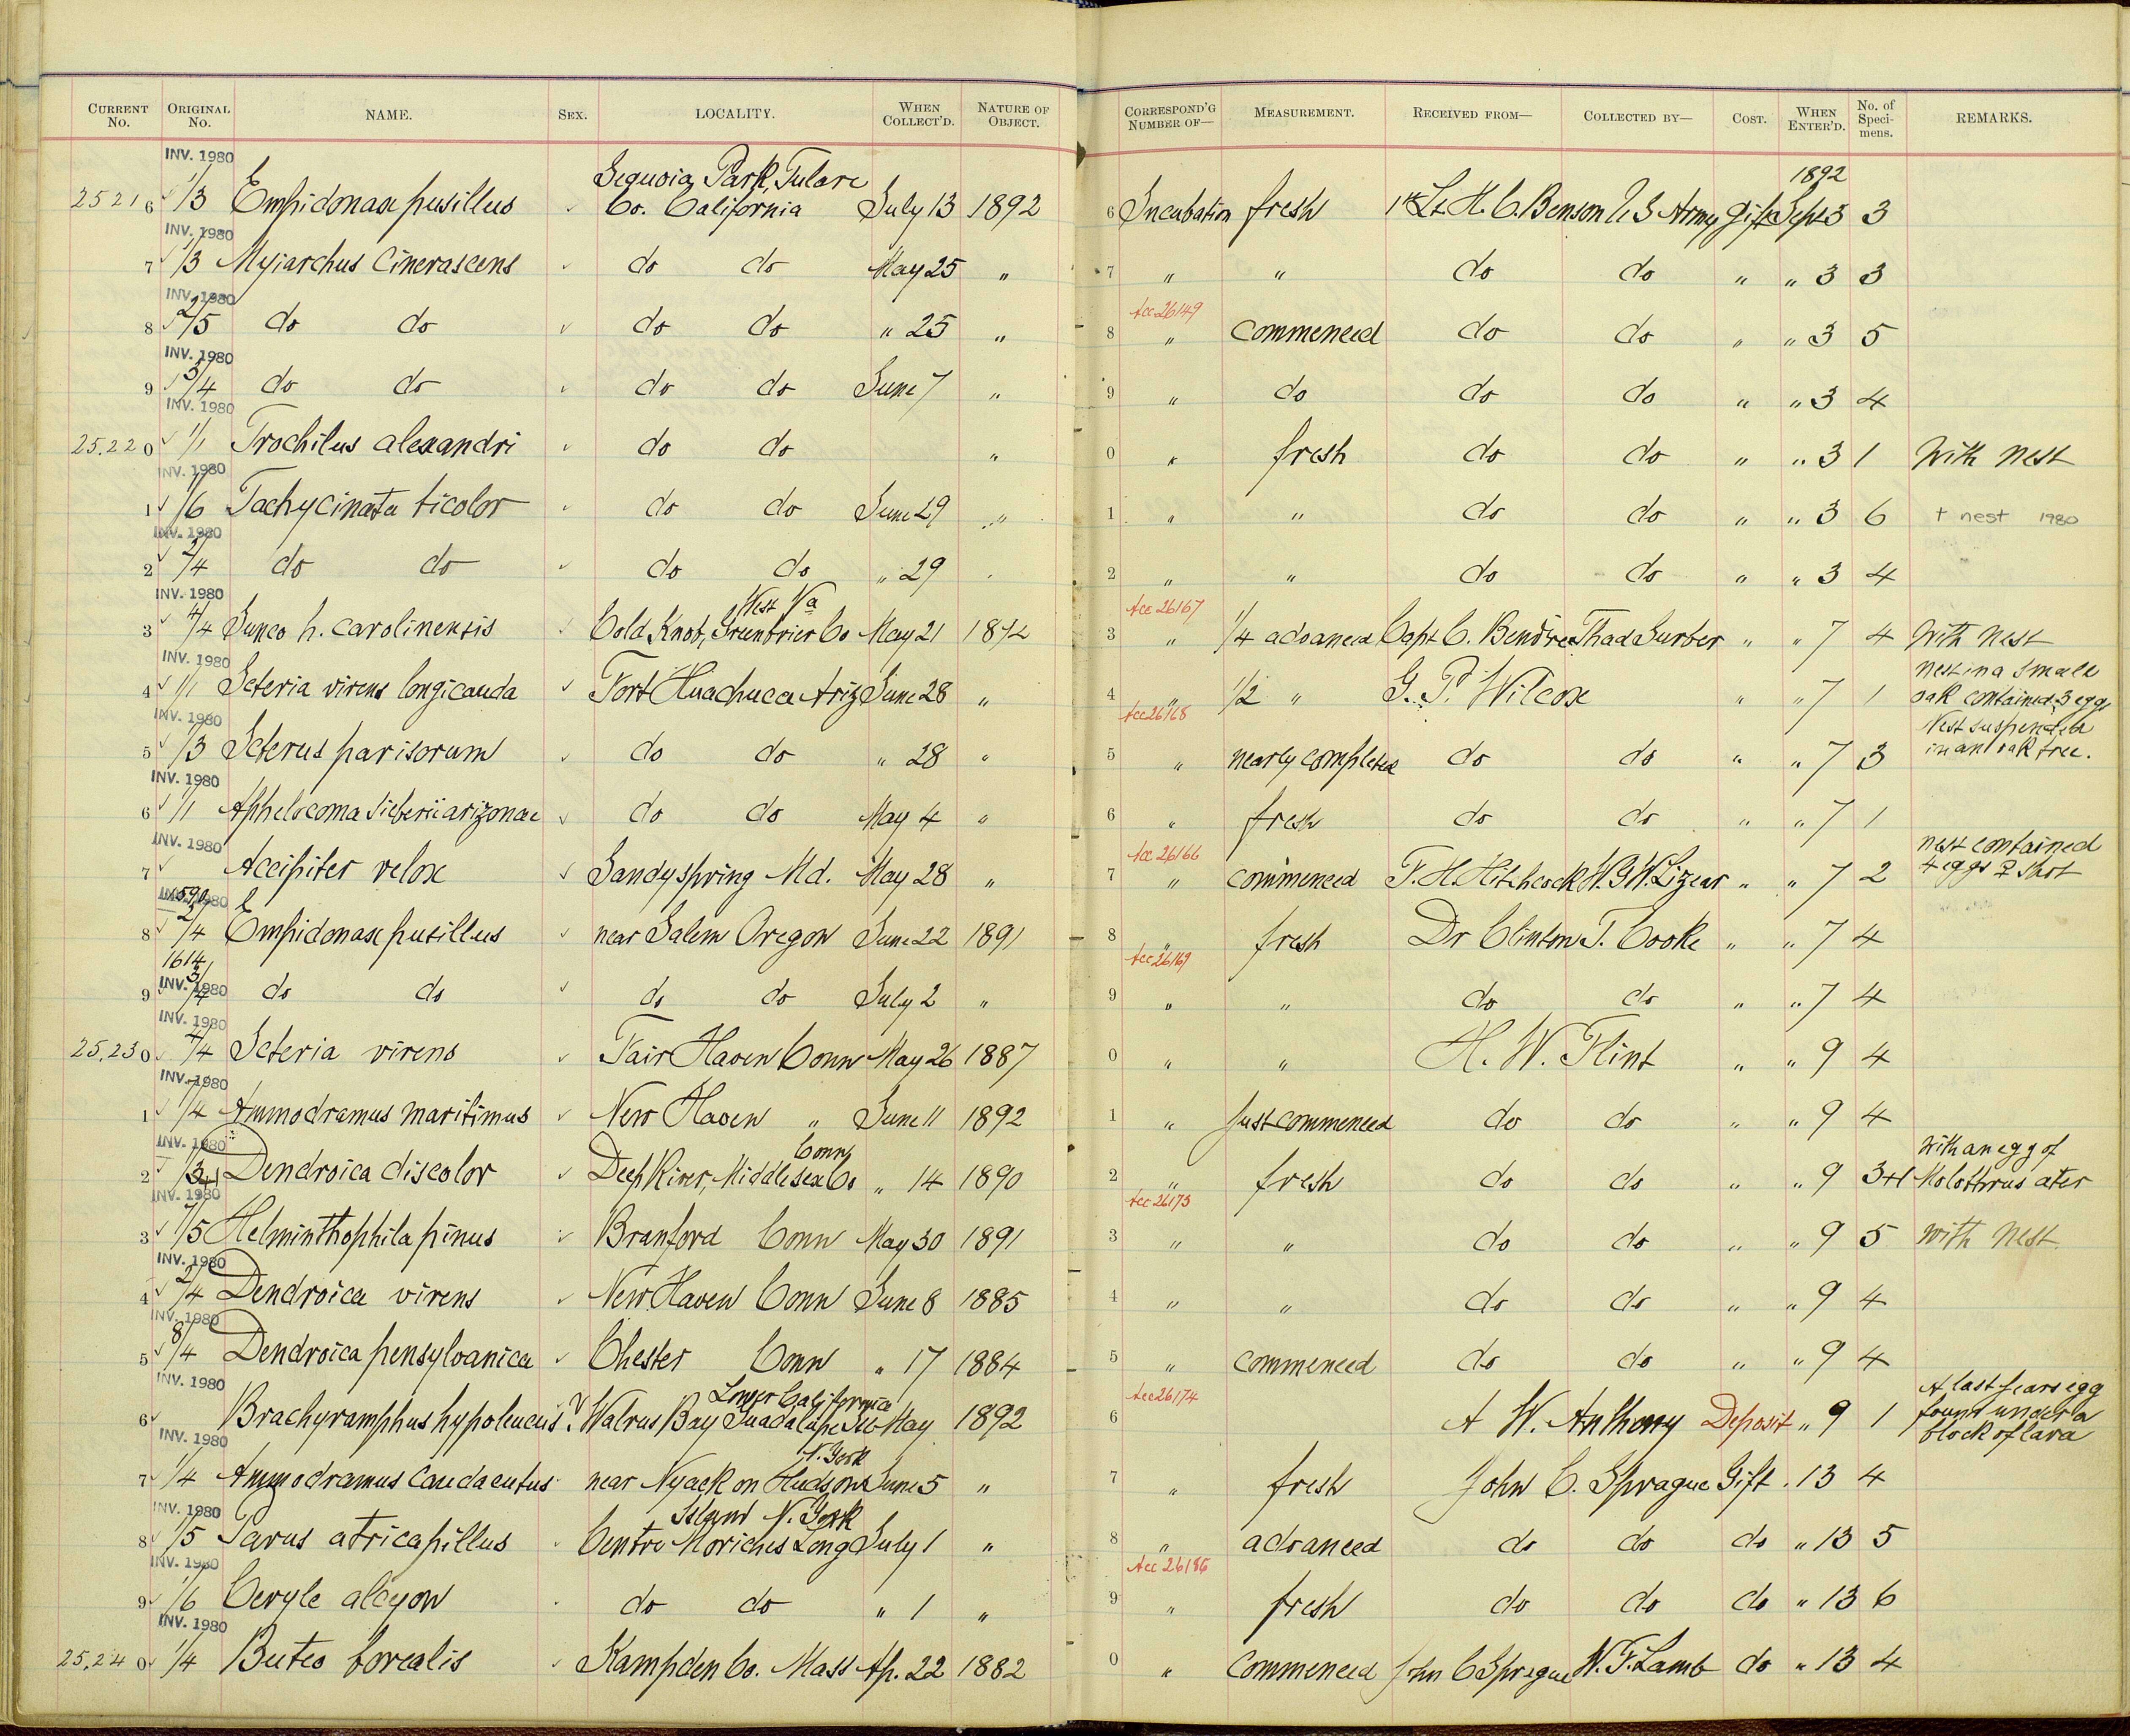 CURRENT No. ORIGINAL No. NAME. SEX. LOCALITY. WHEN COLLECT'D. NATURE OF OBJECT. CORRESPOND'G NUMBER OF— MEASUREMENT. RECEIVED FROM— COLLECTED BY— COST. WHEN ENTER'D. No. of Speci-mens. REMARKS.
INV. 1980 Sequoia Park, Tulare 1892
25216 1/3 Empidonax pusillus Co. California July 13 1892 6 Incubation fresh 1st Lt. H. C. Benson U S Army gift Sept 3 3
INV. 1980
7 1/3 Myiarchus Cinerascens do do May 25 " 7 " " do do " " 3 3
INV. 1980 Acc 26149
8 2/5 do do do do " 25 " 8 " Commenced do do " " 3 5
INV. 1980
9 3/4 do do do do June 7 " 9 " do do do " " 3 4
INV. 1980
25.220 1/1 Trochilus alexandri do do " 0 " fresh do do " " 3 1 With nest
INV. 1980
1 1/6 Tachycineta bicolor do do June 29 " 1 " " do do " " 3 6 + nest 1980
INV. 1980
2 2/4 do do do do " 29 2 " " do do " " 3 4
INV. 1980 West Va Acc 26167
3 4/4 Junco h. carolinensis Cold Knob, Greenbrier Co May 21 1892 3 " 1/4 advanced Capt C. Bendire Thad Surber " " 7 4 With nest
INV. 1980 nest in a small
4 1/1 Icteria virens longicauda Fort Huachuca Ariz June 28 " 4 " 1/2 " G. P. Wilcox " " 7 1 oak contained 3 eggs
INV. 1980 Acc 26168 Nest suspended
5 1/3 Icterus parisorum do do " 28 " 5 " nearly completed do do " " 7 3 in an oak tree.
INV. 1980
6 1/1 Aphelocoma sieberii arizonae do do May 4 " 6 " fresh do do " " 7 1
INV. 1980 Acc 26166 nest contained
7 Accipiter velox Sandy spring Md. May 28 " 7 " commenced F. H. Hitchcock W. G. W. Lizear " " 7 2 4 eggs ♀ shot
INV. 1980
8 2/4 Empidonax pusillus near Salem Oregon June 22 1891 8 " fresh Dr Clinton T. Cooke " " 7 4
1614 Acc 26169
INV. 1980
9 3/4 do do do do July 2 " 9 " " do do " " 7 4
INV. 1980
25.230 4/4 Icteria virens Fair Haven Conn May 26 1887 0 " " H. W. Flint " " 9 4
INV. 1980
1 7/4 Ammodramus maritimus New Haven " June 11 1892 1 " Just commenced do do " " 9 4
INV. 1980 Conn With an egg of
2 1/3+1 Dendroica discolor Deep River, Middlesex Co " 14 1890 2 " fresh do do " " 9 3+1 Molothrus ater
INV. 1980 Acc 26173
3 1/5 Helminthophila pinus Branford Conn May 30 1891 3 " " do do " " 9 5 With nest
INV. 1980
4 2/4 Dendroica virens New Haven Conn June 8 1885 4 " " do do " " 9 4
INV. 1980
5 8/4 Dendroica pensylvanica Chester Conn " 17 1884 5 " commenced do do " " 9 4
INV. 1980 Lower California Acc 26174 A last years egg
6 Brachyramphus hypoleucus ? Walrus Bay Guadalupe Isl May 1892 6 A W. Anthony Deposit " 9 1 found under a
block of lava
INV. 1980 N. York
7 1/4 Ammodramus Caudacutus near Nyack on Hudson June 5 " 7 " fresh John C. Sprague Gift " 13 4
INV. 1980 Island N. York
8 1/5 Parus atricapillus Centre Moriches Long July 1 " 8 " advanced do do do " 13 5
INV. 1980 Acc 26186
9 1/6 Ceryle alcyon do do " 1 " 9 " fresh do do do " 13 6
INV. 1980
25.240 1/4 Buteo borealis Hampden Co. Mass Ap. 22 1882 0 " Commenced John C Sprague W. F. Lamb do " 13 4